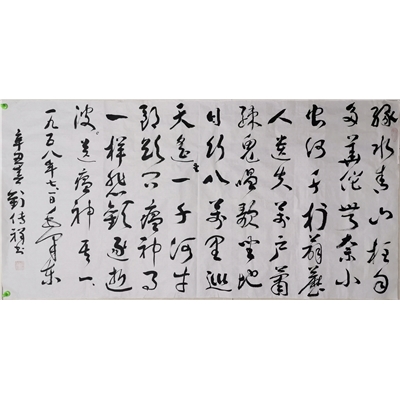 綠水青山枉自
多華佗無奈小
虫何千村薜荔
人遗失萬户蕭
疎鬼唱歌坐地
日行八萬里巡
天遥看一千河牛
郎欲问瘟神事
一样悲歡逐逝
波送瘟神其一
一九五八年七一日毛泽东
辛丑春劉传祥书